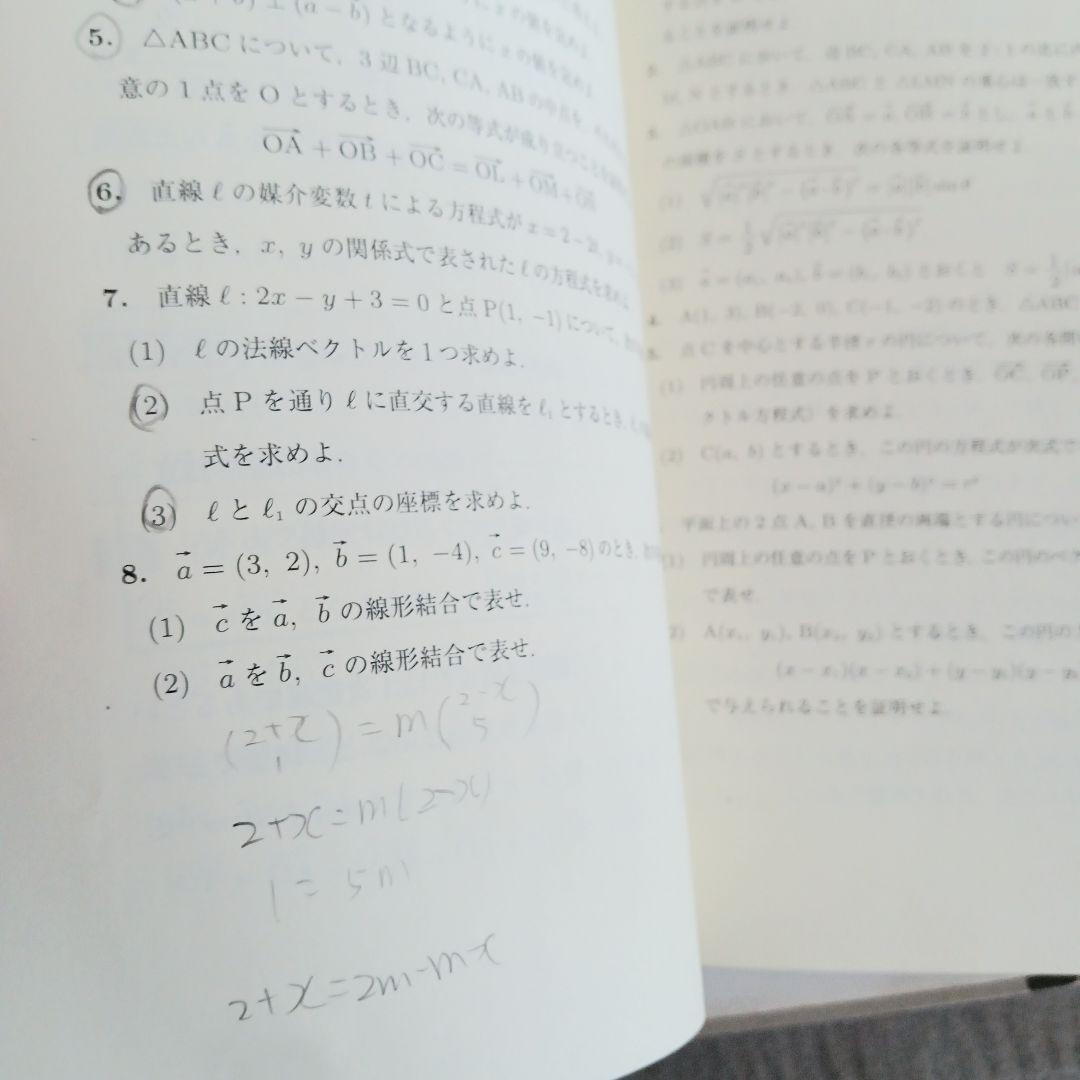 (a − b) となるように x の値を求めよ
5. △ABC について，3 辺 BC, CA, AB の中点を
意の 1 点を O とするとき，次の等式が成り立つことを
OA + OB + OC = OL + OM + ON
6. 直線 ℓ の媒介変数 t による方程式が x = 2 −
あるとき，x, y の関係式で表された ℓ の方程式を求めよ
7. 直線 ℓ : 2x − y + 3 = 0 と点 P(1, −1) について，
(1) ℓ の法線ベクトルを 1 つ求めよ．
(2) 点 P を通り ℓ に直交する直線を ℓ₁ とするとき，
式を求めよ．
(3) ℓ と ℓ₁ の交点の座標を求めよ．
8. a = (3, 2), b = (1, −4), c = (9, −8) のとき，
(1) c を a, b の線形結合で表せ．
(2) a を b, c の線形結合で表せ．
(2+x 1) = m(2-x 5)
2+x = m(2-x)
1 = 5m
2+x = 2m-mx
△ABC において，辺 BC, CA, AB を
とするとき，△ABC と △LMN の重心は一致す
△OAB において，OA = a, OB = b とし，a と b
の面積を S とするとき，次の各等式を証明せよ
A(1, 3), B(−2, 0), C(−1, −2) のとき，△ABC
点 C を中心とする半径 r の円について，次の各問
(1) 円周上の任意の点を P とおくとき，OC, OP,
クトル方程式）を求めよ．
(2) C(a, b) とするとき，この円の方程式が次式で
(x − a)² + (y − b)² = r²
平面上の 2 点 A, B を直径の両端とする円につい
円周上の任意の点を P とおくとき，この円のベク
で表せ．
A(x₁, y₁), B(x₂, y₂) とするとき，この円の
(x − x₁)(x − x₂) + (y − y₁)(y − y₂
で与えられることを証明せよ．